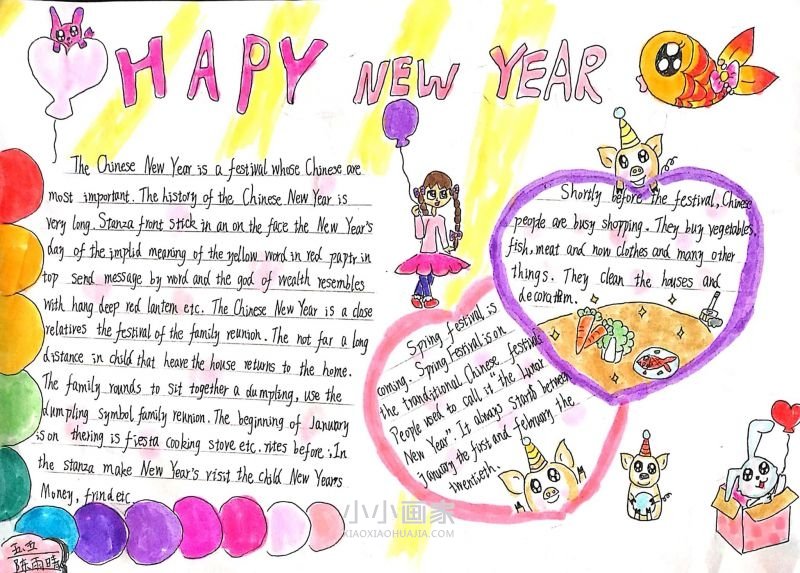 HAPY NEW YEAR
The Chinese New Year is a festival whose Chinese are
most important. The history of the Chinese New Year is
very long. Stanza front stick in an on the face the New Year's
day of the implid meaning of the yellow word in red paptr in
top send message by word and the god of wealth resembles
with hang deep red lantern etc. The Chinese New Year is a close
relatives the festival of the family reunion. The not far a long
distance in child that heave the house returns to the home.
The family rounds to sit together a dumpling, use the
dumpling symbol family reunion. The beginning of January
is on thering is fiesta cooking stove etc. rites before: In
the stanza make New Year's visit the child New Years
Money, frind etc
Shortly before the festival, Chinese
people are busy shopping. They buy vegetables,
fish, meat and now clothes and many other
things. They clean the houses and
decoratem.
Spring festival is
coming. Spring Festival is on
the tranditional Chinese festivals
People used to call it "the Lunar
New Year". It always starts between
January the first and february the
twentieth.
五五
陈雨
小小画家
XIAOXIAOHUAJIA.COM